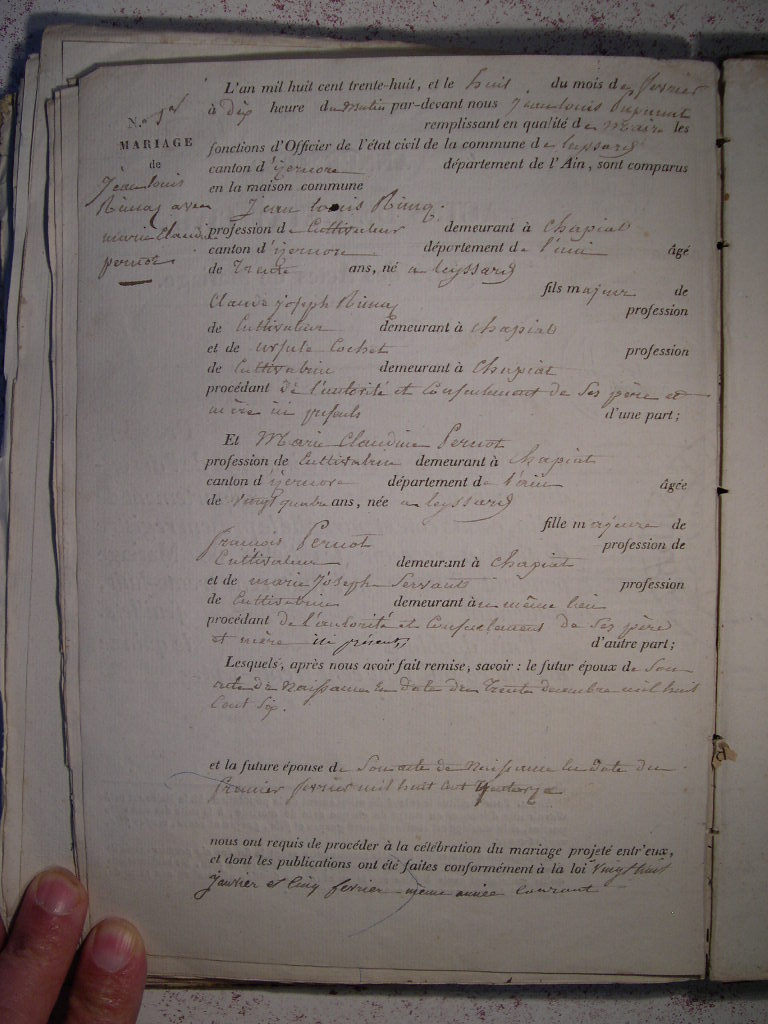 L'an mil huit cent trente-huit, et le huit du mois de fevrier
à Dix heure du matin par-devant nous Jean louis
remplissant en qualité de Maire les
fonctions d'Officier de l'état civil de la commune de leyssard
canton d'izernore département de l'Ain, sont comparus
en la maison commune
N.o 1er
MARIAGE
de
Jean louis
avec
marie Claudine
pernot
Jean louis
profession de Cultivateur demeurant à Chapiat
canton d'izernore département de l'ain âgé
de Trente ans, né a leyssard
fils majeur de
Claude joseph profession
de Cultivateur demeurant à chapiat
et de ursule Cochet profession
de Cultivatrice demeurant à Chapiat
procédant De l'autorité et Consentement de Ses père et
mère ici présents d'une part;
Et Marie Claudine Pernot
profession de Cultivatrice demeurant à Chapiat
canton d'izernore département de l'ain âgée
de vingt quatre ans, née a leyssard
fille majeure de
françois Pernot profession de
Cultivateur demeurant à Chapiat
et de marie Joseph Servant profession
de Cultivatrice demeurant au même lieu
procédant de l'autorité et Consentement de Ses père
et mère ici présents d'autre part;
Lesquels, après nous avoir fait remise, savoir : le futur époux de Son
acte de Naissance En Date du Trente decembre mil huit
Cent Six.
et la future épouse de Son acte de Naissance En Date du
premier fevrier mil huit cent quatorze
nous ont requis de procéder à la célébration du mariage projeté entr'eux,
et dont les publications ont été faites conformément à la loi vingt huit
Janvier et Cinq fevrier même année Courant